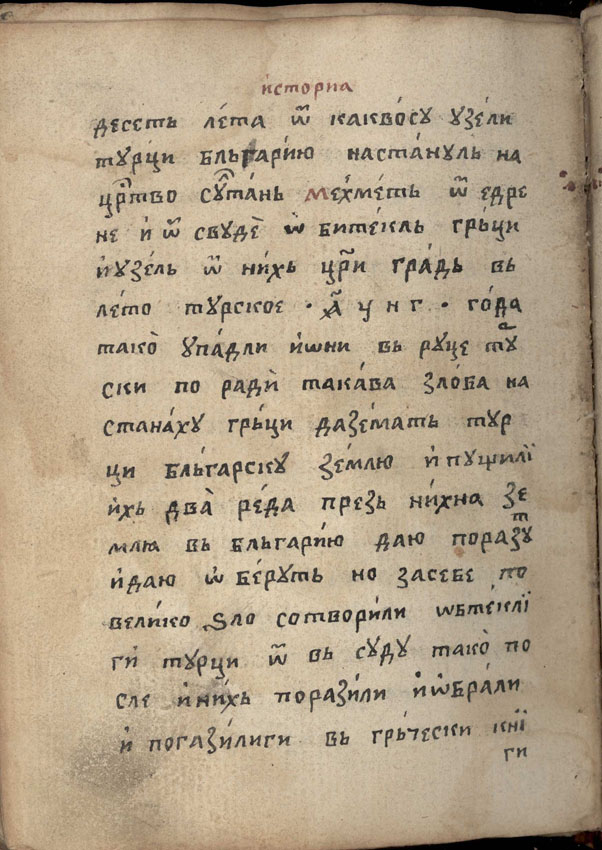 исторïа
десеть лѣта ѿ каквосу узели
турци бльгарïю настануль на
црⷭтво суⷧтань меⷯметь ѿ едре
не и ѿ свуде ѡбитекль грьци
и узель ѿ нихь цр҃и градь вь
лето турское ҂а҃ у н г года
тако упадли иѡни вь руце туⷬ
ски поради такава злоба на
станаху грьци даземать тур
ци бльгарску землю и пущилï
ихь два реда презь нихна зе
млю вь бльгарïю даю поразуⷮ
идаю ѡберуть но засебе по
велико ѕло сотворили ѡбтеклï
ги турци ѿ вь суду тако по
сле инихь поразили иѡбрали
и погазилиги вь грьчески кнï
ги